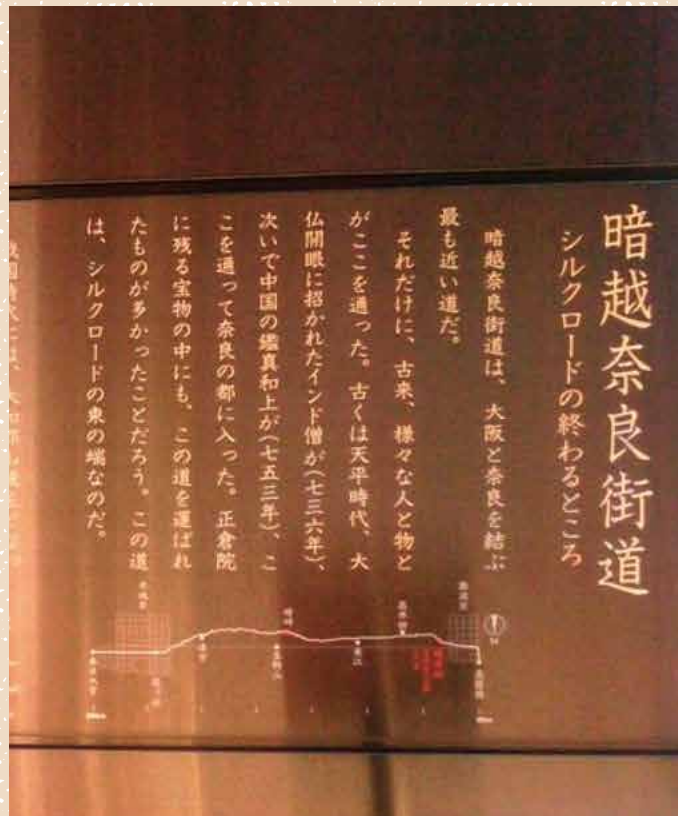 暗越奈良街道
シルクロードの終わるところ
暗越奈良街道は、大阪と奈良を結ぶ
最も近い道だ。
それだけに、古来、様々な人と物と
がここを通った。古くは天平時代、大
仏開眼に招かれたインド僧が(七三六年)、
次いで中国の鑑真和上が(七五三年)、こ
こを通って奈良の都に入った。正倉院
に残る宝物の中にも、この道を運ばれ
たものが多かったことだろう。この道
は、シルクロードの東の端なのだ。